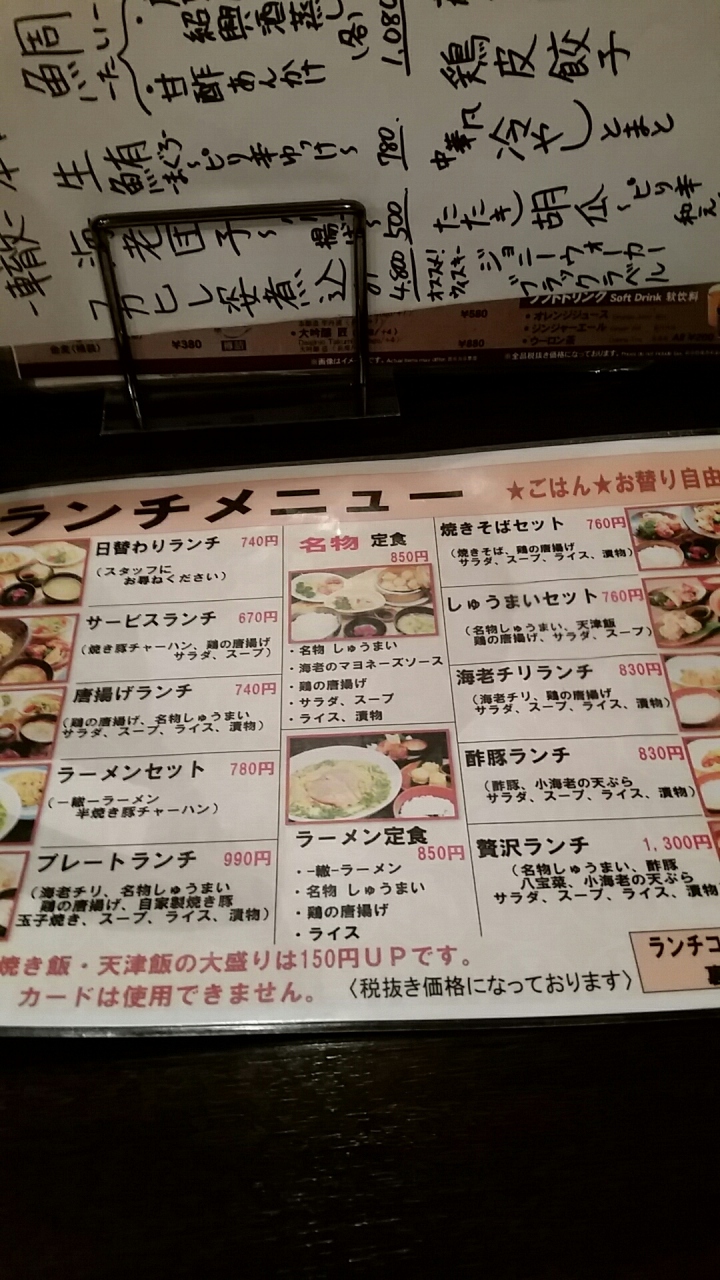 鯛〜たい〜
紹興酒蒸し
甘酢あんかけ
1,080
生鮪まぐろ〜ピリ辛ゆっけ〜 780
海老団子〜 500
フカヒレ姿煮込 4,800
鶏皮餃子
中華風冷やしとまと
たたき胡瓜〜ピリ辛和え
オススメ!ウィスキー
ジョニーウォーカー
ブラックラベル
¥380
大吟醸
¥580
¥880
ソフトドリンク Soft Drink 软饮料
・オレンジジュース
・ジンジャーエール
・ウーロン茶
※画像はイメージです。
※全品税抜き価格になっております。
ランチメニュー
★ごはん★お替り自由
日替わりランチ 740円
(スタッフに
お尋ねください)
サービスランチ 670円
(焼き豚チャーハン、鶏の唐揚げ
サラダ、スープ)
唐揚げランチ 740円
(鶏の唐揚げ、名物しゅうまい
サラダ、スープ、ライス、漬物)
ラーメンセット 780円
(一轍一ラーメン
半焼き豚チャーハン)
プレートランチ 990円
(海老チリ、名物しゅうまい
鶏の唐揚げ、自家製焼き豚
玉子焼き、スープ、ライス、漬物)
名物 定食
850円
・名物 しゅうまい
・海老のマヨネーズソース
・鶏の唐揚げ
・サラダ、スープ
・ライス、漬物
ラーメン定食
850円
・一轍一ラーメン
・名物 しゅうまい
・鶏の唐揚げ
・ライス
焼きそばセット 760円
(焼きそば、鶏の唐揚げ
サラダ、スープ、ライス、漬物)
しゅうまいセット 760円
(名物しゅうまい、天津飯
鶏の唐揚げ、サラダ、スープ)
海老チリランチ 830円
(海老チリ、鶏の唐揚げ
サラダ、スープ、ライス、漬物)
酢豚ランチ 830円
(酢豚、小海老の天ぷら
サラダ、スープ、ライス、漬物)
贅沢ランチ 1,300円
(名物しゅうまい、酢豚
八宝菜、小海老の天ぷら
サラダ、スープ、ライス、漬物)
焼き飯・天津飯の大盛りは150円UPです。
カードは使用できません。
〈税抜き価格になっております〉
ランチコ